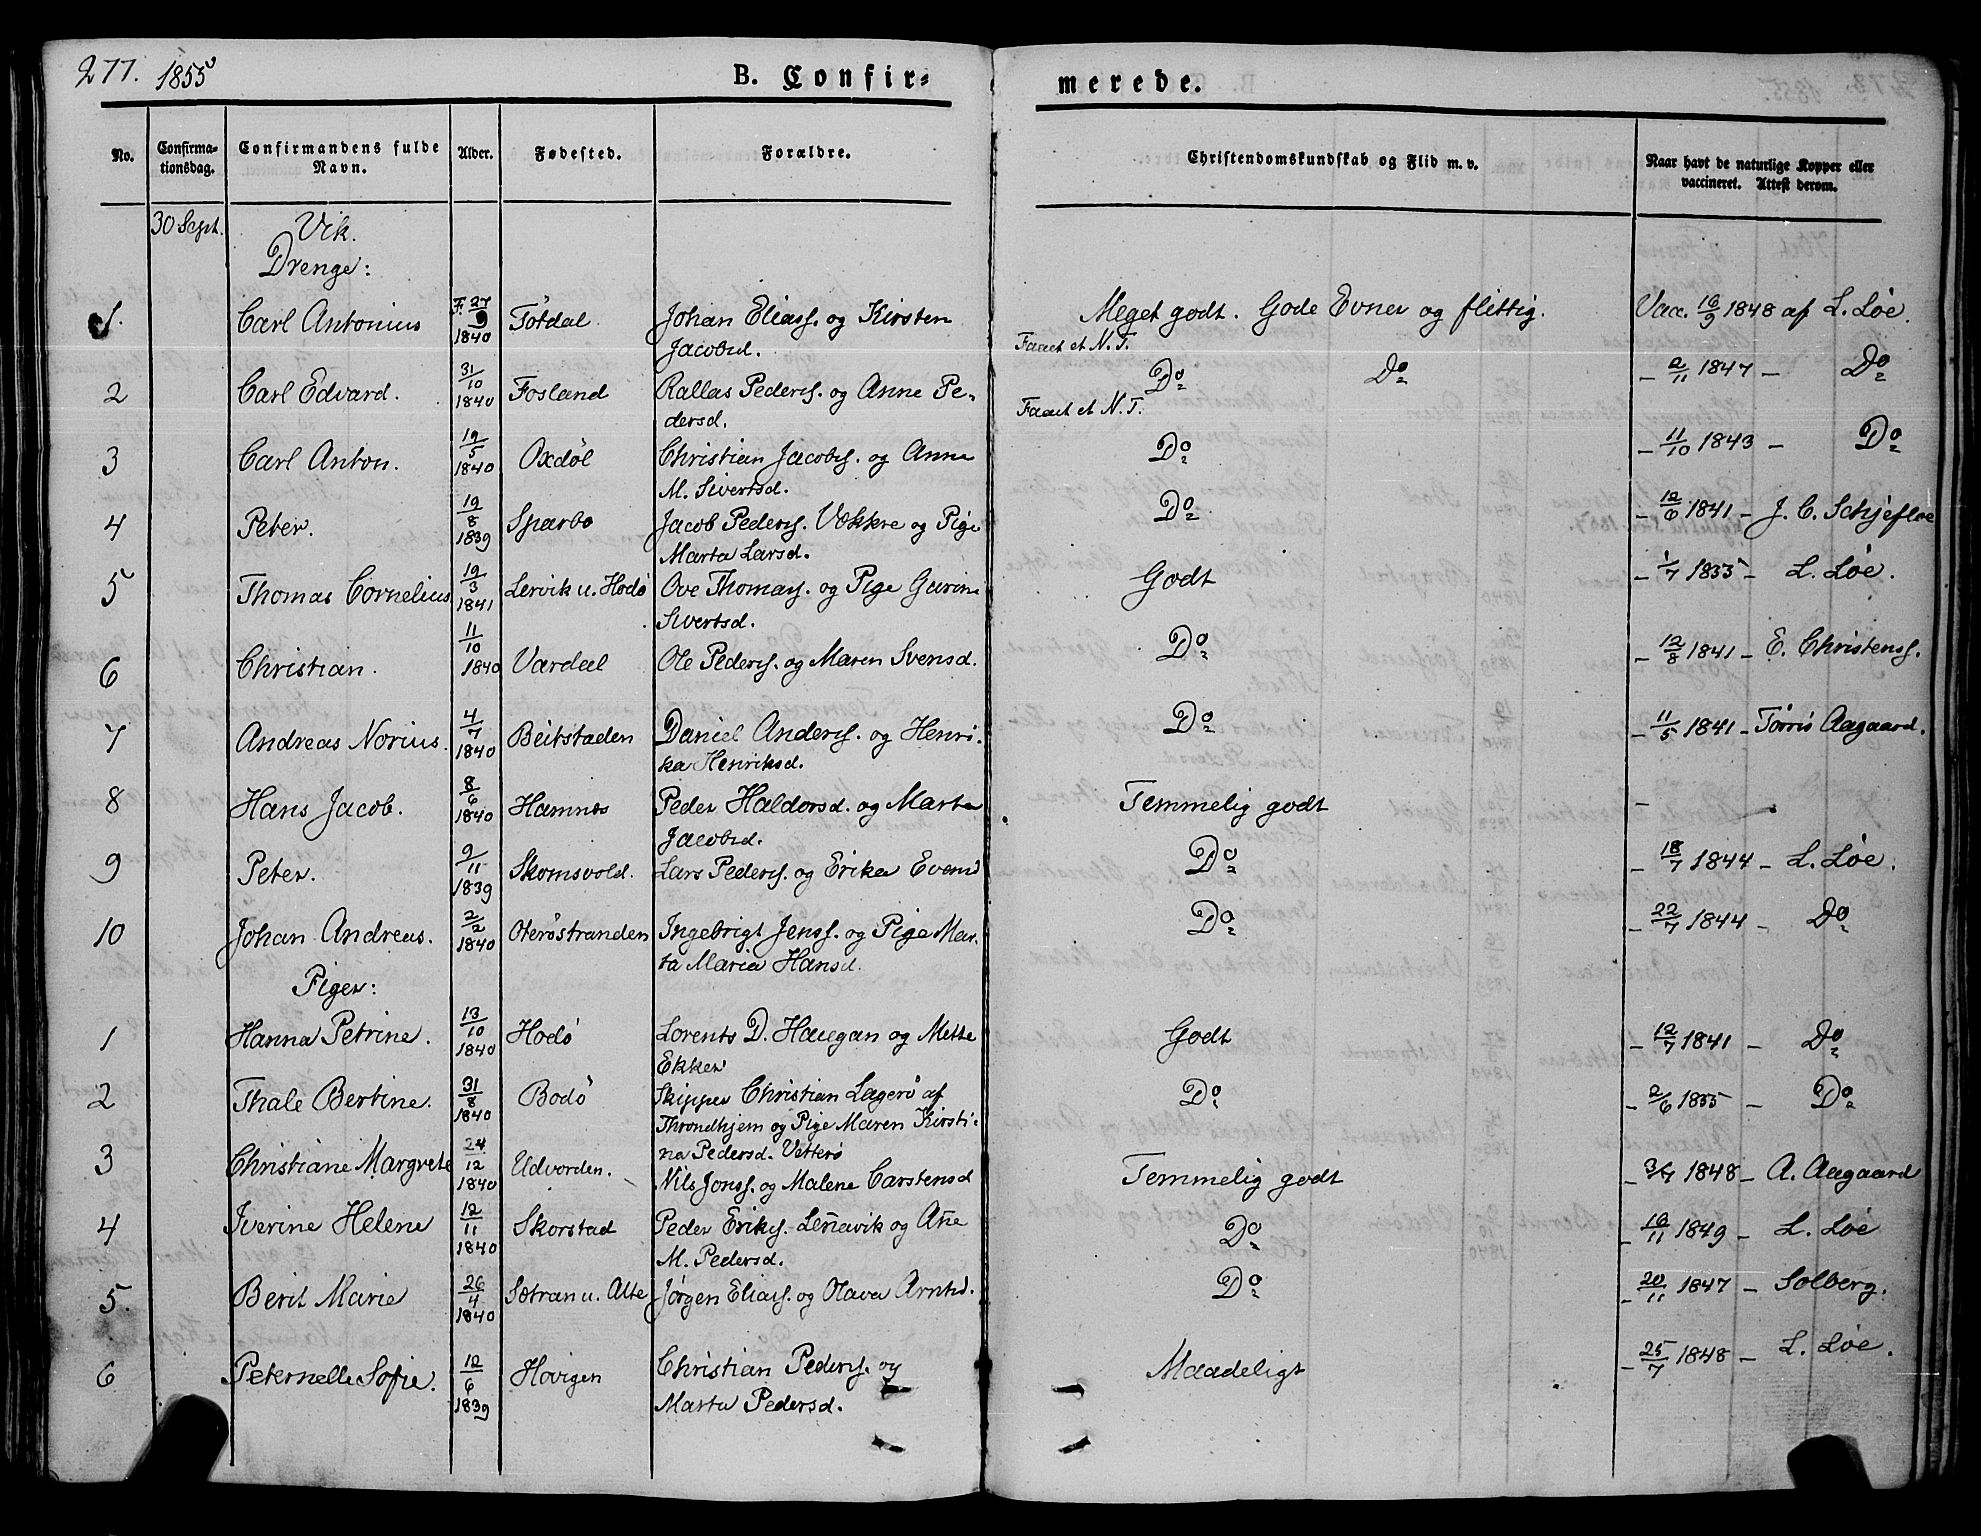 277. 1855
B. Confir= merede.
No. Confirma-tionsdag. Confirmandens fulde Navn. Alder. Fødested. Forældre. Christendomskundskab og Flid m. v. Naar havt de naturlige Kopper eller vaccineret. Attest derom.
30 Sept. Vik.
Drenge:
1. Carl Antonius F. 27/9 1840 Tötdal Johan Eliass. og Kirsten Meget godt. Gode Evner og flittig. Vacc. 16/9 1848 af L. Löe.
Jacobsd. Faaet et N. T.
2 Carl Edvard. 31/10 1840 Fosland Rallas Peders. og Anne Pe- Do Do - 2/11 1847 - Do
dersd. Faaet et N. T.
3 Carl Anton. 19/5 1840 Oxdöl Christian Jacobs. og Anne Do - 11/10 1843 - Do
M. Sivertsd.
4 Peter. 19/8 1839 Sparbo Jacob Peders. Vekkre og Pige Do - 12/6 1841 - J. C. Schjefloe
Marta Larsd.
5 Thomas Cornelius 19/3 1841 Lervik u. Hodö Ove Thomass. og Pige Gurine Godt - 1/7 1855 - L. Löe.
Sivertsd.
6 Christian. 11/10 1840 Vardal Ole Peders. og Maren Svensd. Do - 12/8 1841 - E. Christens.
7 Andreas Norius. 4/7 1840 Beitstaden Daniel Anders. og Henri- Do - 11/5 1841 - Törris Aagaard.
ka Henriksd.
8 Hans Jacob. 8/6 1840 Hamnes Peder Haldorsd. og Marta Temmelig godt -
Jacobsd.
9 Peter. 9/11 1839 Skomsvold. Lars Peders. og Erika Evensd Do - 18/7 1844 - L. Löe.
10 Johan Andreas. 2/2 1840 Oteröstranden Ingebrigt Jenss. og Pige Mar- Do - 22/7 1844 - Do
ta Maria Hansd.
Piger:
1 Hanna Petrine. 13/10 1840 Hodö Lorents D. Haugan og Mette Godt - 12/7 1841 - Do
Ekker
2 Thale Bertine. 31/8 1840 Bodö Skipper Christian Lagerö af Do - 2/6 1855 - Do
Throndhjem og Pige Maren Kirsti-
na Pedersd. Vetterö
3 Christiane Margrete 24/12 1840 Udvorden. Nils Jonss. og Malene Carstensd Temmelig godt 1848 - A. Aagaard
4 Iverine Helene 12/11 1840 Skorstad Peder Eriks. Lenavik og Ane Do - 16/11 1849 - L. Löe
M. Pedersd.
5. Berit Marie 26/4 1840 Sætran u. Alte Jørgen Eliass. og Olava Arntsd. Do - 20/11 1847 - Solberg.
6 Peternelle Sofie. 12/6 1839 Hovigen Christian Peders. og Maadeligt - 25/7 1848 - L. Löe.
Marta Pedersd.